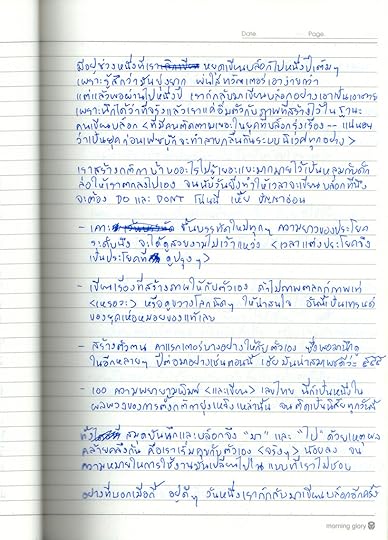 Date Page
มีอยู่ช่วงหนึ่งที่เรา หยุดเขียนบล็อกไปหนึ่งปีเต็มๆ
เพราะรู้สึกว่ามันยุ่งยาก พ่นใส่ทวิตเตอร์เอาง่ายกว่า
แต่แล้วพอผ่านไปหนึ่งปี เราก็กลับมาเขียนบล็อกอย่างเอาเป็นเอาตาย
เพราะนึกได้ว่าที่จริงแล้วเราแค่อิ่มตัวกับภาพที่สร้างไว้ใน ฐานะ
คนเขียนบล็อก <ที่มีคนติดตามเยอะในยุคที่บล็อกรุ่งเรือง -- แน่นอน
ว่าเป็นยุคก่อนเฟซบุ๊กจะทำลายกลืนกินระบบนิเวศทุกอย่าง>
เราสร้างกติกาบ้าบออะไรไม่รู้เยอะแยะมากมายไว้เป็นหลุมกับดัก
ล่อให้เราตกลงไปเอง จนนับวันยิ่งทำให้เวลาจะเขียนบล็อกทีนึง
จะต้อง DO และ DON'T โน่นนี่ เหี้ย ปัญญาอ่อน
- เคาะ ขึ้นบรรทัดใหม่ทุกๆ ความยาวของประโยค
ระดับนึง จะได้ดูสวยงามไม่เว้าแหว่ง <เวลาแต่งประโยคจึง
เป็นประโยคที่ ดูปรุงๆ>
- เขียนเรื่องที่สร้างภาพให้กับตัวเอง ถ้าไม่ภาพตลกก็ภาพเท่
<เหรอวะ> หรือดูขวางโลกนิดๆ ให้น่าสนใจ อันนี้เป็นเทรนด์
ของยุคเห่อหมอยของแท้เลย
- สร้างตัวตน คาแรกเตอร์บางอย่างให้กับตัวเอง ซึ่งพอมานึกดู
ในอีกหลายๆ ปีต่อมาอย่างเช่นตอนนี้ เฮ้ย มันน่าสมเพชดีว่ะ ๕๕๕
- 100 ความพยายามพิมพ์ <และเขียน> เลขไทย นี่ก็เป็นหนึ่งใน
ผลพวงของการตั้งกติกายุ่งเหยิงเหล่านั้น จนติดเป็นนิสัยทุกวันนี้
ทั้ง สมุดบันทึกและบล็อกจึง "มา" และ "ไป" ด้วยเหตุผล
คล้ายคลึงกัน คือเราเริ่มคุยกับตัวเอง <จริงๆ> น้อยลง จน
ความหมายในการใช้งานมันเปลี่ยนไปใน แบบที่เราไม่ชอบ
อย่างที่บอกเมื่อกี้ อยู่ดีๆ วันหนึ่งเราก็กลับมาเขียนบล็อกอีกครั้ง
morning glory